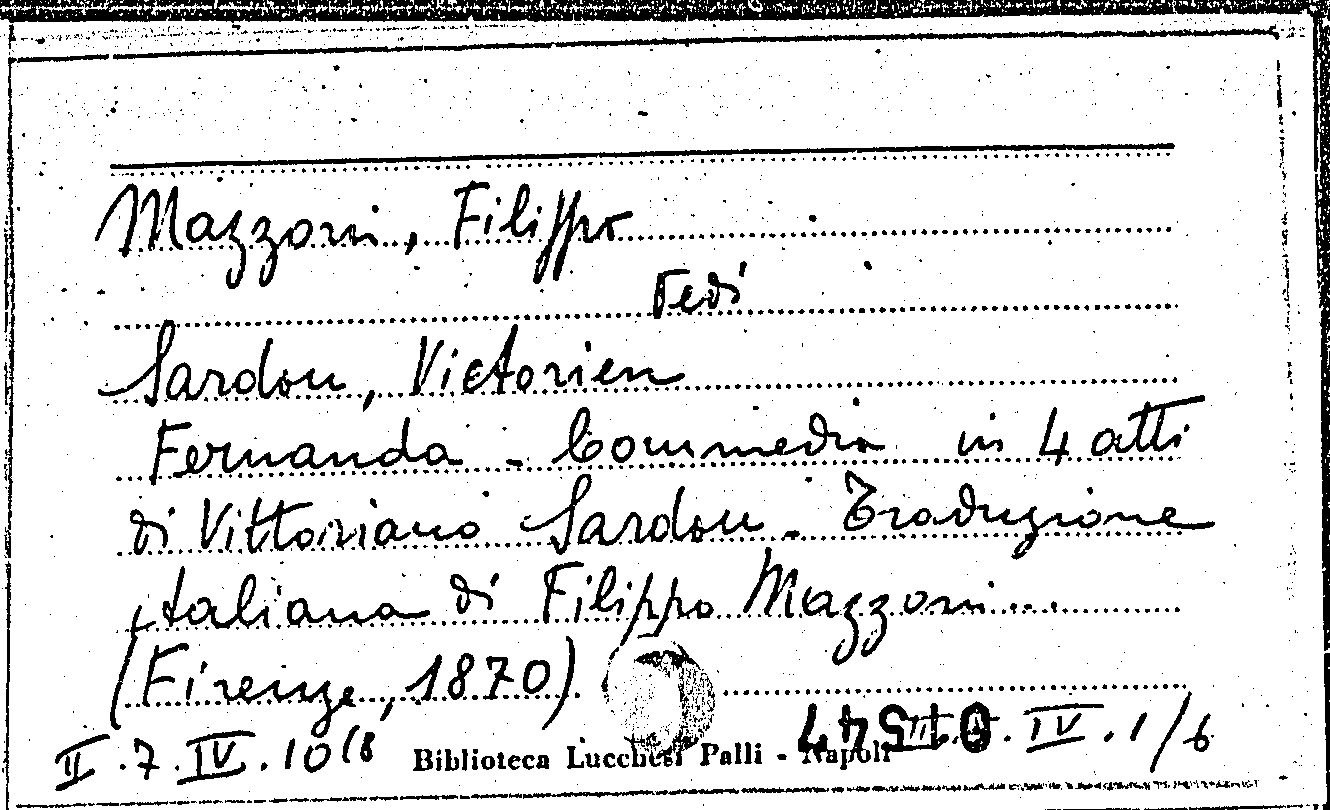 Mazzoni, Filippo
Vedi
Sardou, Victorien
Fernanda - Commedia in 4 atti
di Vittoriano Sardou - Traduzione
italiana di Filippo Mazzoni...
(Firenze, 1870)
II.7.IV.10(8 Biblioteca Lucchesi Palli - Napoli .IV.1/6